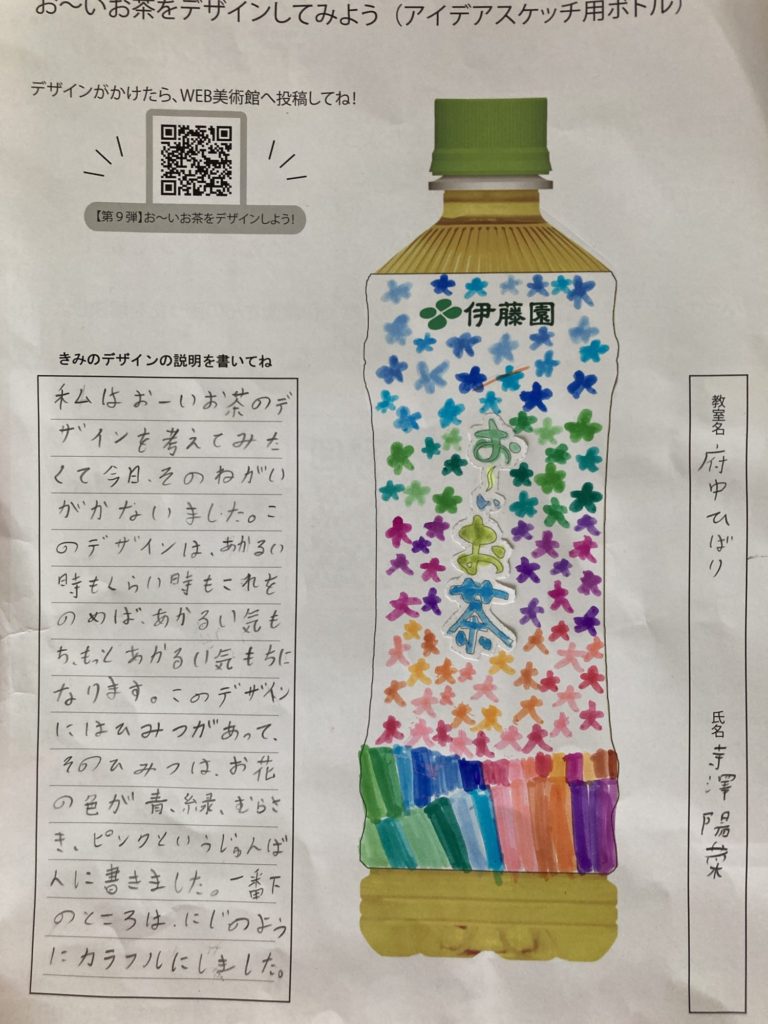 お〜いお茶をデザインしてみよう（アイデアスケッチ用ボトル）
デザインがかけたら、WEB美術館へ投稿してね！
【第９弾】お〜いお茶をデザインしよう！
伊藤園
お〜いお茶
きみのデザインの説明を書いてね
私はおーいお茶のデ
ザインを考えてみた
くて今日、そのねがい
がかないました。こ
のデザインは、あかるい
時もくらい時もこれを
のめば、あかるい気も
ち、もっとあかるい気もちに
なります。このデザイン
にはひみつがあって、
そのひみつは、お花
の色が青、緑、むらさ
き、ピンクというじゅんば
んに書きました。一番下
のところは、にじのよう
にカラフルにしました。
教室名 府中ひばり
氏名 寺澤陽菜